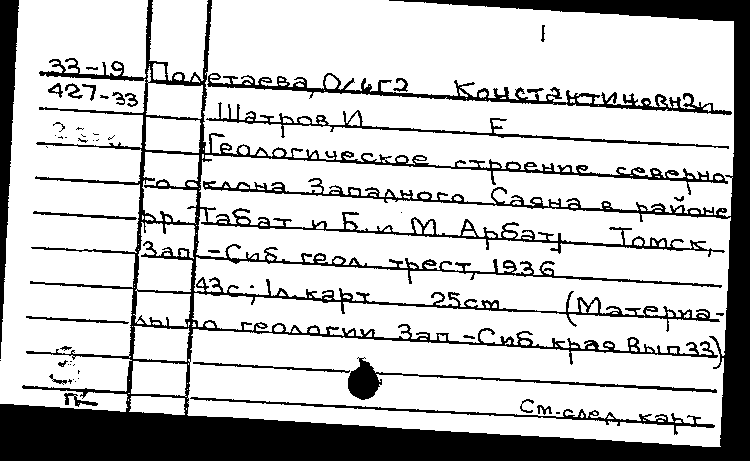 I
33-19 Полетаева, Ольга Константиновна и
427-33 Шатров, И Е
Геологическое строение северно-
го склона Западного Саяна в районе
рр. Табат и Б. и М. Арбаты Томск,
Зап-Сиб. геол. трест, 1936
43с; 1л. карт 25cm (Материа-
лы по геологии Зап-Сиб. края Вып 33)
З
пк
См. след. карт